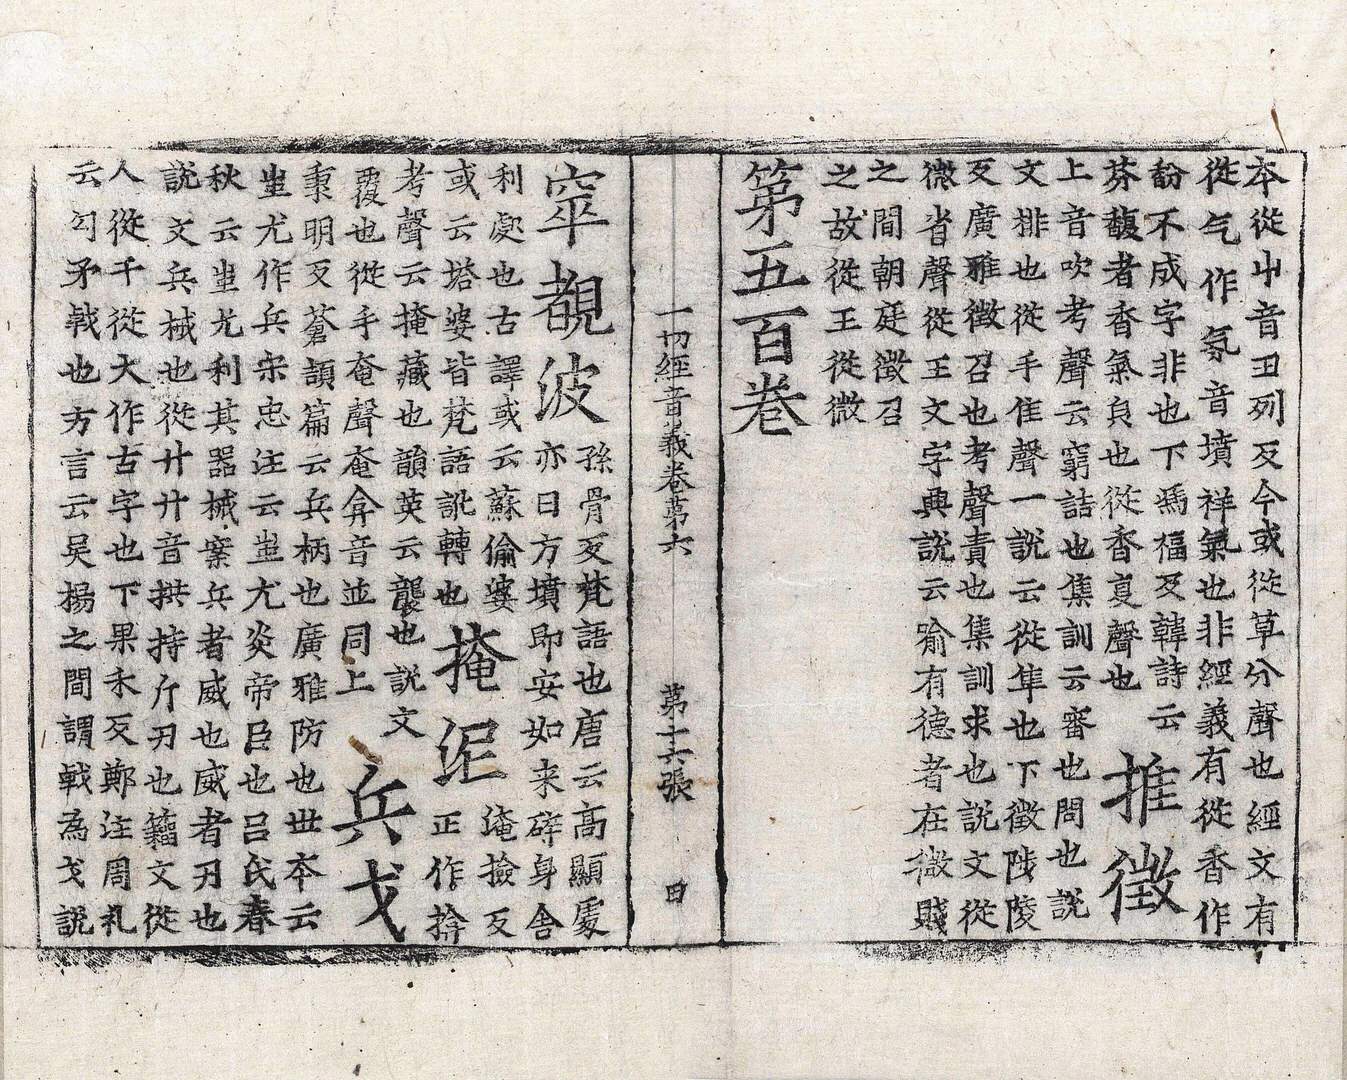 本從屮音丑列反今或從草分聲也經文有
從气作氛音墳祥氣也非經義有從香作
馚不成字非也下馮福反韓詩云
芬馥者香氣皃也從香复聲也
推徵
上音吹考聲云窮詰也集訓云審也問也說
文排也從手隹聲一說云從隼也下徵陟陵
反廣雅徵召也考聲責也集訓求也說文從
微省聲從王文字典說云喻有德者在微賤
之間朝廷徵召
之故從王從微
第五百卷
一切經音義卷第六 第十六張 日
窣覩波
孫骨反梵語也唐云高顯處
亦曰方墳即安如来碎身舍
利處也古譯或云蘇偷婆
或云塔婆皆梵語訛轉也
掩泥
淹撿反
正作揜
考聲云掩藏也韻英云襲也說文
覆也從手奄聲奄弇音並同上
兵戈
秉明反蒼頡篇云兵柄也廣雅防也世本云
蚩尤作兵宋忠注云蚩尤炎帝臣也吕氏春
秋云蚩尤利其器械案兵者威也威者刃也
說文兵械也從廾廾音拱持斤刃也籀文從
人從干從大作古字也下果禾反鄭注周礼
云勾矛戟也方言云吴揚之間謂戟為戈說